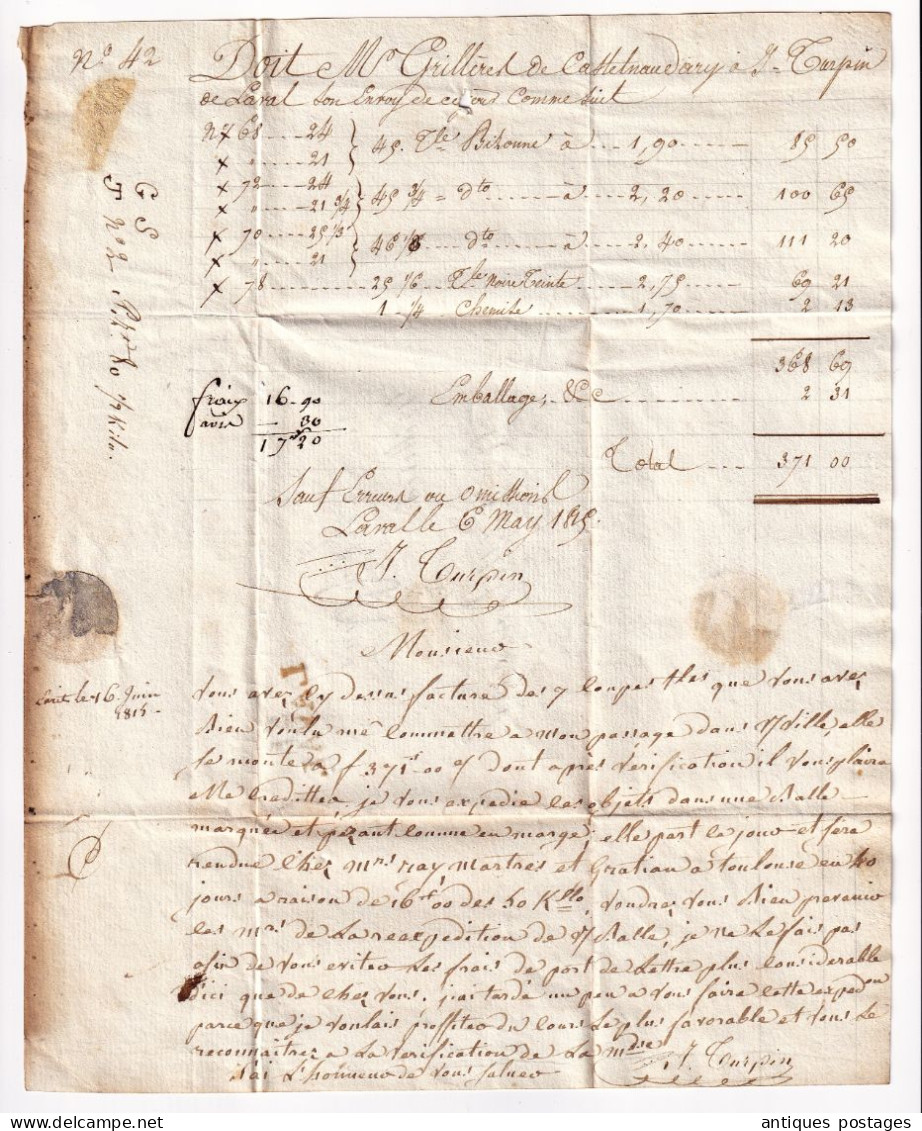 N° 42
Doit Mr Grillères de Castelnaudary à J. Turpin
de Laval son Envoy de ce jour Comme suit
N° 68 .... 24
x " .... 21 } 45. Tle Bizonne à ... 1,90 ... 85 50
x 72 .... 24
x " .... 21 3/4 } 45 3/4 = dto ... à ... 2,20 ... 100 65
x 70 .... 25 1/3
x " .... 21 } 46 1/3 dto ... à ... 2,40 ... 111 20
x 78 .... 25 1/6 Tle noire Teinte ... 2,75 ... 69 21
1 1/4 Chemise ... 1,70 ... 2 13
368 69
Emballage, &c ... 2 31
Total ... 371 00
fraix 16-90
- 30
17 20
G S
N° 2 80 1/2 Kilo.
Sauf Erreurs ou omissions
Laval le 6 May 1815.
J. Turpin
Monsieur
le 16 Juin
1815
vous avez cy dessus facture des 7 coupes tles que vous avez
bien voulu me commettre a mon passage dans v/ ville, elle
se monte a f 371 00 dont après verification il vous plaira
me crediter. je vous expedie ces objets dans une Balle
marquée et pezant comme en marge; elle part ce jour et sera
rendue chez Mrs ray, Martres et Gratian a toulouse en 40
jours a raison de 16 00 des 50 Klo, voudrez vous bien prevenir
ces Mrs de La reexpedition de v/ Balle, je ne Le fais pas
afin de vous eviter Les frais de port de Lettre plus considerable
dici que de chez vous. j'ai tardé un peu a vous faire cette expedon
parce que je voulais proffiter du cours Le plus favorable et vous Le
reconnaitrez a La verification de La mdse
J'ai L'honneur de vous saluer J. Turpin
antiques postales